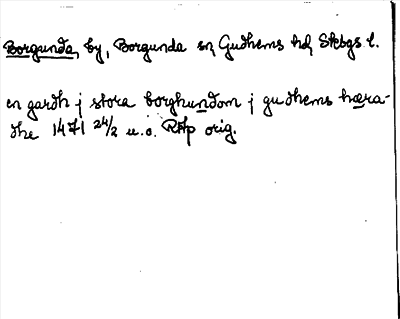 Borgunda, by, Borgunda sn, Gudhems hd, Skbgs l.
en gardh j stora borghundom j gudhems hæra-
dhe 1471 24/2 u.o. RAp orig.